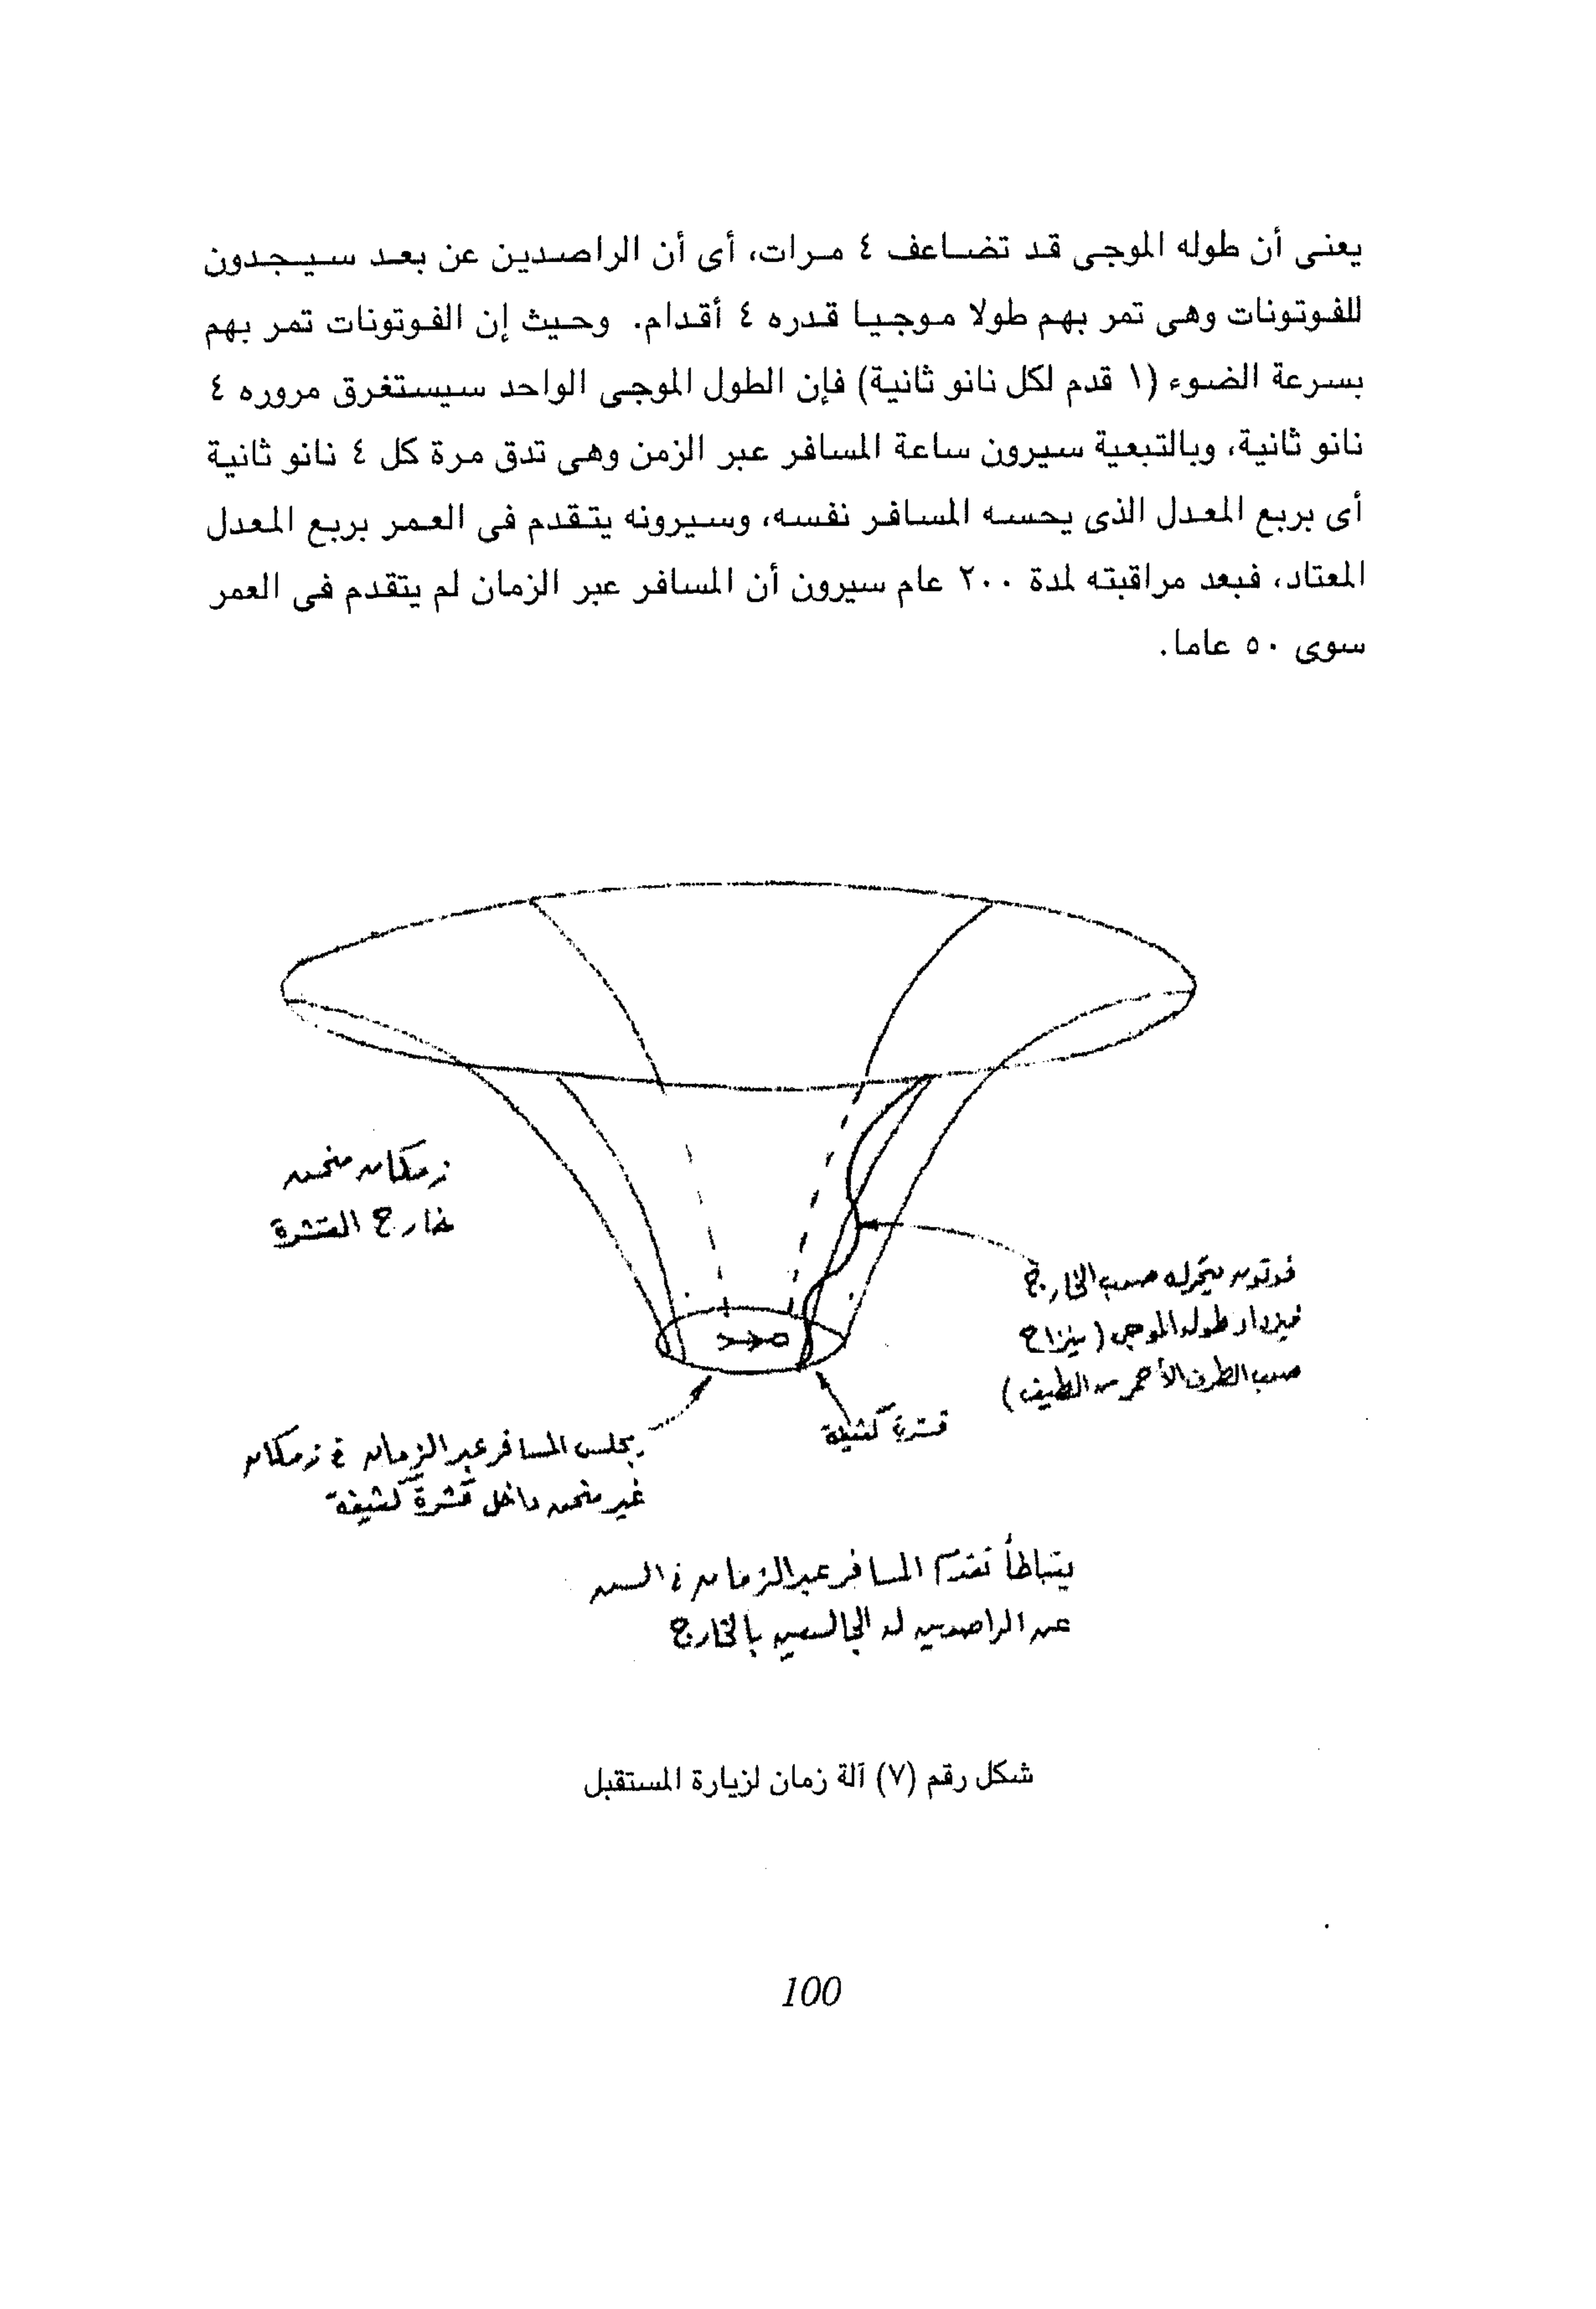 يعنى أن طوله الموجى قد تضاعف ٤ مرات، أى أن الراصدين عن بعد سيجدون
للفوتونات وهى تمر بهم طولا موجيا قدره ٤ أقدام. وحيث إن الفوتونات تمر بهم
بسرعة الضوء (١ قدم لكل نانو ثانية) فإن الطول الموجى الواحد سيستغرق مروره ٤
نانو ثانية، وبالتبعية سيرون ساعة المسافر عبر الزمن وهى تدق مرة كل ٤ نانو ثانية
أى بربع المعدل الذى يحسه المسافر نفسه، وسيرونه يتقدم فى العمر بربع المعدل
المعتاد، فبعد مراقبته لمدة ٢٠٠ عام سيرون أن المسافر عبر الزمان لم يتقدم فى العمر
سوى ٥٠ عاما.
زمكان منحن
خارج القشرة
فوتون يتحرك صوب الخارج
فيزداد طوله الموجى (ينزاح
صوب الطرف الأحمر من الطيف)
قشرة كثيفة
يجلس المسافر عبر الزمان فى زمكان
غير منحن داخل قشرة كثيفة
يتباطأ تقدم المسافر عبر الزمان فى السن
عن الراصدين له الجالسين بالخارج
شكل رقم (٧) آلة زمان لزيارة المستقبل
100